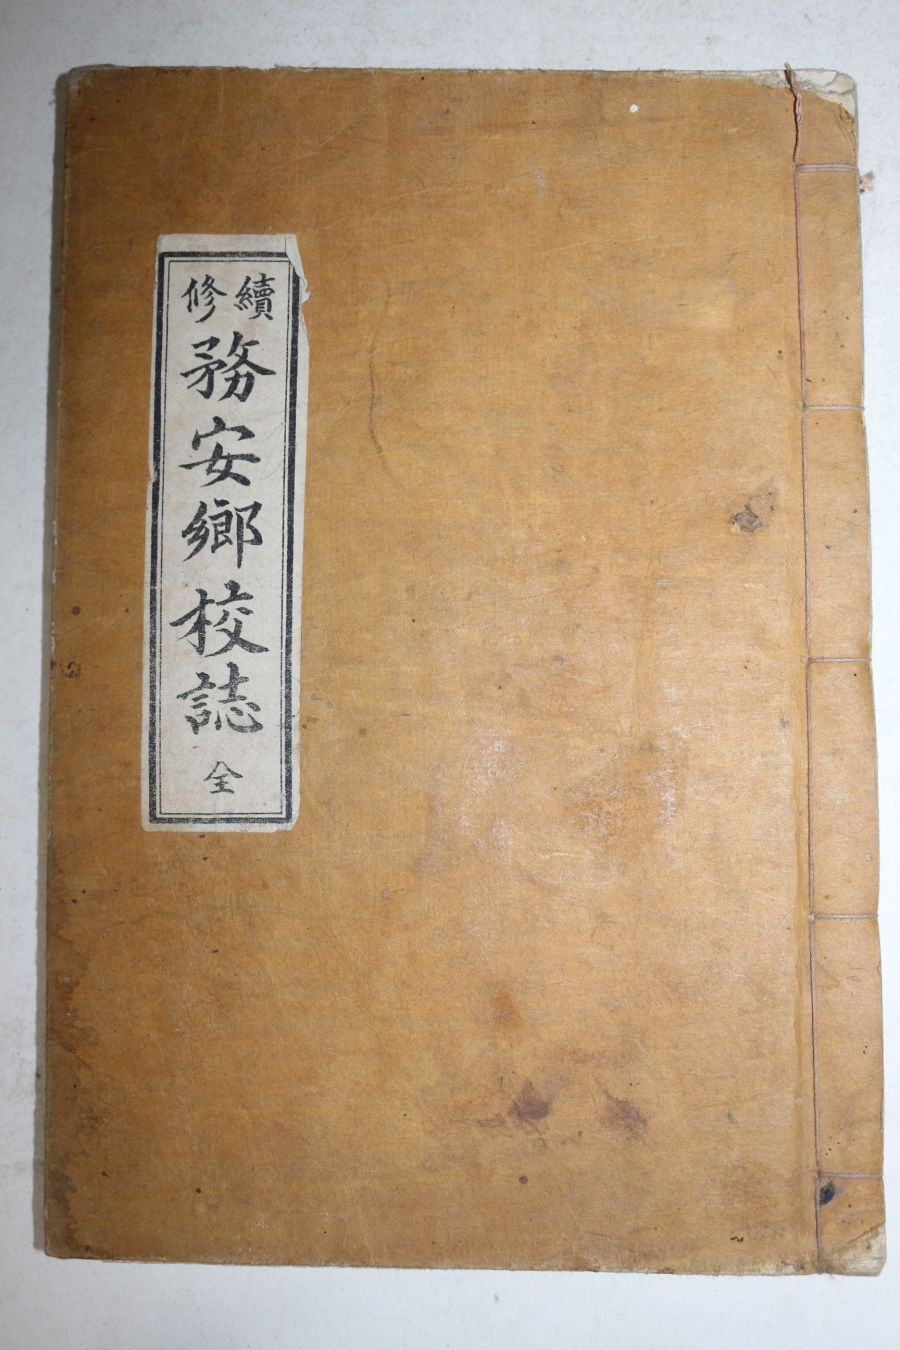 續修
務安鄉校誌
全